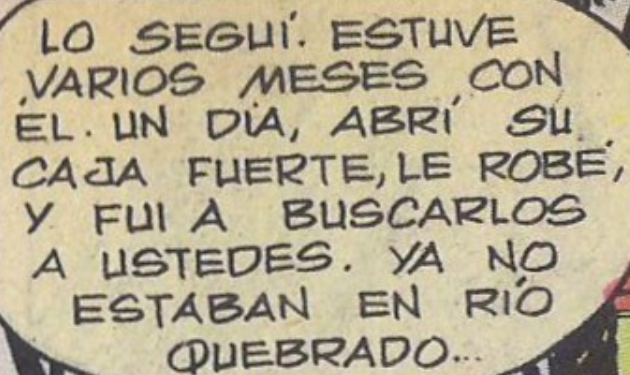 LO SEGUÍ. ESTUVE
VARIOS MESES CON
ÉL. UN DÍA, ABRÍ SU
CAJA FUERTE, LE ROBÉ,
Y FUI A BUSCARLOS
A USTEDES. YA NO
ESTABAN EN RÍO
QUEBRADO...